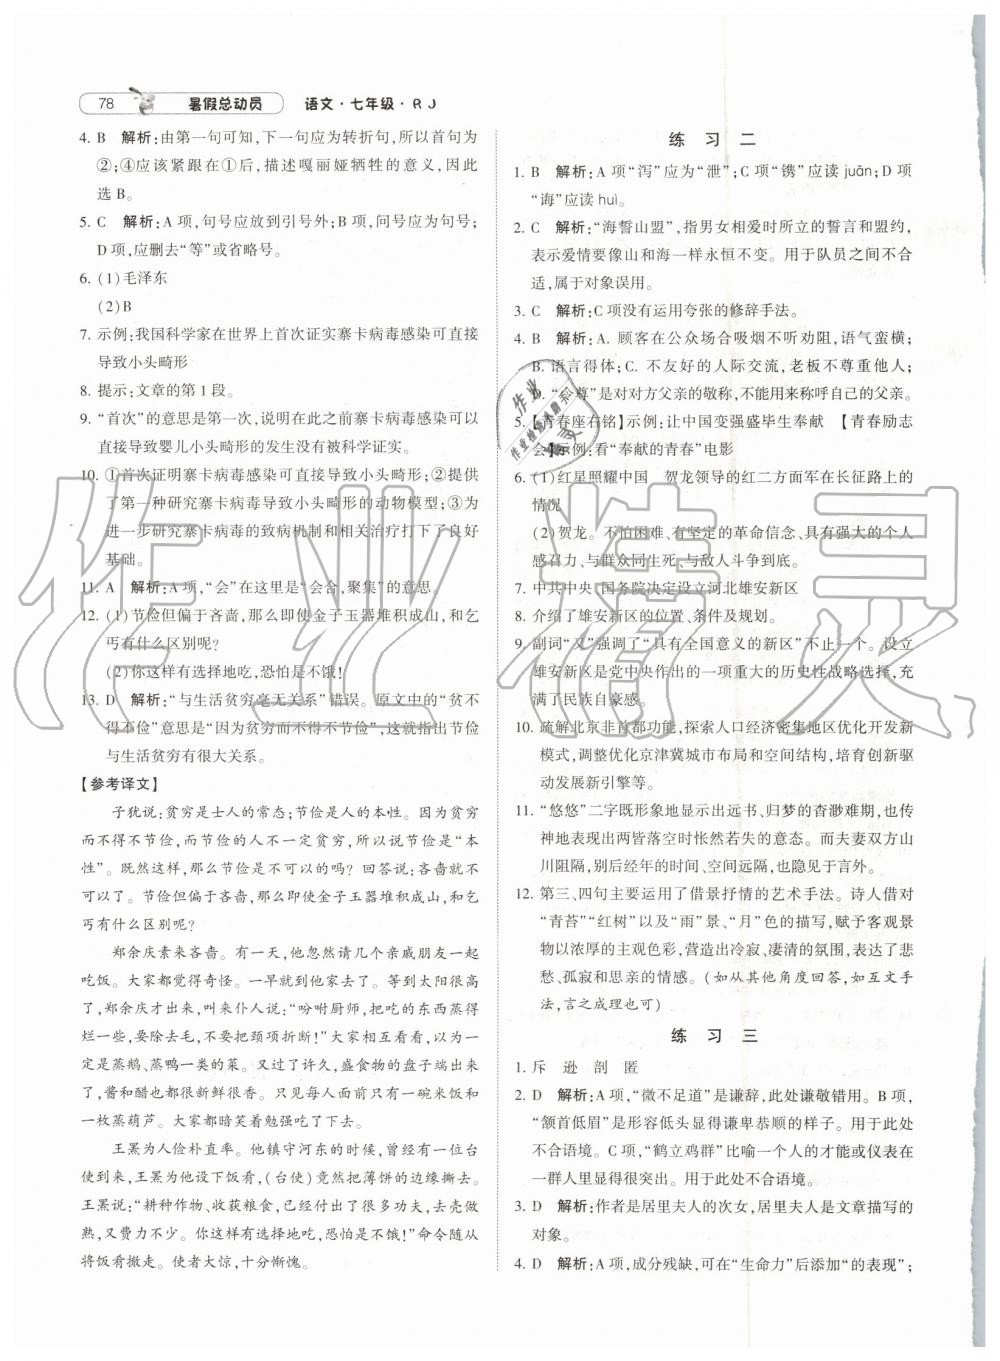 78 暑假总动员 语文·七年级·RJ
4. B 解析:由第一句可知,下一句应为转折句,所以首句为
②;④应该紧跟在①后,描述嘎丽娅牺牲的意义,因此
选B。
5. C 解析:A项,句号应放到引号外;B项,问号应为句号;
D项,应删去“等”或省略号。
6. (1)毛泽东
(2)B
7. 示例:我国科学家在世界上首次证实寨卡病毒感染可直接
导致小头畸形
8. 提示:文章的第1段。
9. “首次”的意思是第一次,说明在此之前寨卡病毒感染可以
直接导致婴儿小头畸形的发生没有被科学证实。
10. ①首次证明寨卡病毒感染可直接导致小头畸形;②提供
了第一种研究寨卡病毒导致小头畸形的动物模型;③为
进一步研究寨卡病毒的致病机制和相关治疗打下了良好
基础。
11. A 解析:A项,“会”在这里是“会合,聚集”的意思。
12. (1)节俭但偏于吝啬,那么即使金子玉器堆积成山,和乞
丐有什么区别呢?
(2)你这样有选择地吃,恐怕是不饿!
13. D 解析:“与生活贫穷毫无关系”错误。原文中的“贫不
得不俭”意思是“因为贫穷而不得不节俭”,这说明节俭
与生活贫穷有很大关系。
【参考译文】
子犹说:贫穷是士人的常态;节俭是人的本性。因为贫穷
而不得不节俭,而节俭的人不一定贫穷,所以说节俭是“本
性”。既然这样,那么节俭是不可以的吗?回答说:吝啬就不
可以了。节俭但偏于吝啬,那么即使金子玉器堆积成山,和乞
丐有什么区别呢?
郑余庆素来吝啬。有一天,他忽然请几个亲戚朋友一起
吃饭。大家都觉得奇怪。一早就去了。等到太阳很高
了,郑余庆才出来,叫来仆人说:“吩咐厨师,把吃的东西蒸得
烂一些,要除去毛,不要把颈项折断!”大家互相看看,以为一
定是蒸鹅、蒸鸭一类的菜。又过了许久,盛食物的盘子端出来
了,酱和醋也都很新鲜很香。只见每人面前只有一碗米饭和
一枚蒸葫芦。大家都暗笑着勉强吃了下去。
王罴为人俭朴直率。他镇守河东的时候,曾经有一位台
使到来,王罴为他设下饭肴,(台使)竟然将薄饼的边缘撕去。
王罴说:“耕种作物、收获粮食,已经付出了很多功夫,舂去做
熟,又费力不少。你这样有选择地吃,恐怕是不饿!”命令随从
将饭肴撤走。使者大惊,十分惭愧。
练习二
1. B 解析:A项“泻”应为“泄”;C项“镌”应读juān;D项
“诲”应读huì。
2. C 解析:“海誓山盟”,指男女相爱时所立的誓言和盟约,
表示爱情要像山和海一样永恒不变。用于队员之间不合
适,属于对象误用。
3. C 解析:C项没有运用夸张的修辞手法。
4. B 解析:A. 顾客在公众场合吸烟不听劝阻,语气蛮横;
B. 语言得体;C. 不友好的人际交流,老板不尊重他人;
D. “令尊”是对对方父亲的敬称,不能用来称呼自己的父亲。
5. 【青春座右铭】示例:让中国变强盛毕生奉献 【青春励志
会】示例:看“奉献的青春”电影
6. (1)红星照耀中国 贺龙领导的红二方面军在长征路上的
情况
(2)贺龙。不怕困难、有坚定的革命信念、具有强大的个人
感召力、与战友同生死、与敌人斗争到底。
7. 中共中央、国务院决定设立河北雄安新区
8. 介绍了雄安新区的位置、条件及规划。
9. 副词“又”强调了“具有全国意义的新区”不止一个。设立
雄安新区是党中央作出的一项重大的历史性战略选择,充
满了民族自豪感。
10. 疏解北京非首都功能,探索人口经济密集地区优化开发新
模式,调整优化京津冀城市布局和空间结构,培育创新驱
动发展新引擎等。
11. “悠悠”二字既形象地显示出远书、归梦的杳渺难期,也传
神地表现出两皆落空时怅然若失的意态。而夫妻双方山
川阻隔,别后经年的时间、空间远隔,也隐见于言外。
12. 第三、四句主要运用了借景抒情的艺术手法。诗人借对
“青苔”“红树”以及“雨”景、“月”色的描写,赋予客观景
物以浓厚的主观色彩,营造出冷寂、凄清的氛围,表达了悲
愁、孤寂和思亲的情感。(如从其他角度回答,如互文手
法,言之成理也可)
练习三
1. 斥 逊 剖 匿
2. D 解析:A项,“微不足道”是谦辞,此处谦敬错用。B项,
“颔首低眉”是形容低头显得谦卑恭顺的样子。用于此处
不合语境。C项,“鹤立鸡群”比喻一个人的才能或仪表在
一群人里显得很突出。用于此处不合语境。
3. D 解析:作者是居里夫人的次女,居里夫人是文章描写的
对象。
4. D 解析:A项,成分残缺,可在“生命力”后添加“的表现”;
作业精灵
作业检查小帮手